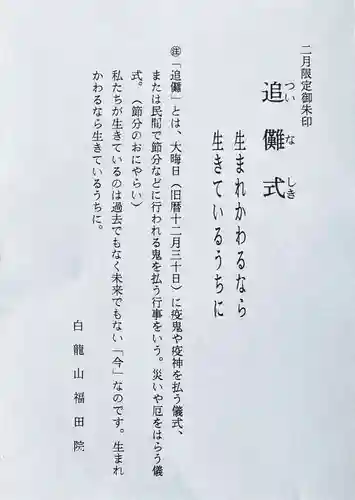 二月限定御朱印
追儺式
ついなしき
生まれかわるなら
生きているうちに
㊟「追儺」とは、大晦日（旧暦十二月三十日）に疫鬼や疫神を払う儀式、
または民間で節分などに行われる鬼を払う行事をいう。災いや厄をはらう儀
式。（節分のおにやらい）
私たちが生きているのは過去でもなく未来でもない「今」なのです。生まれ
かわるなら生きているうちに。
白龍山福田院